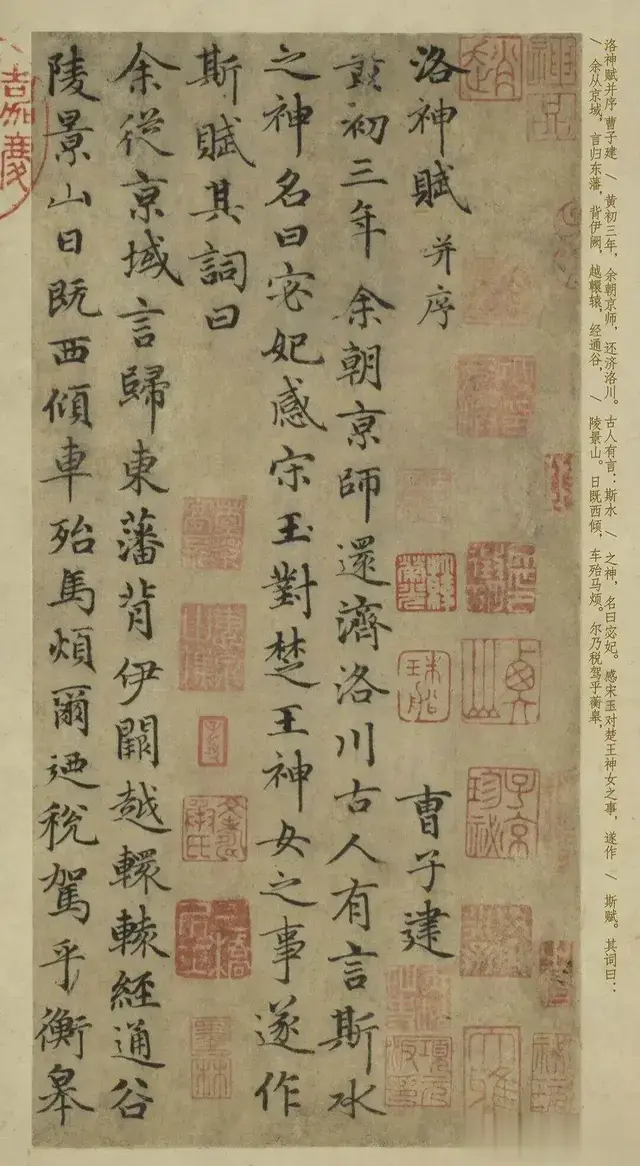 洛神赋并序 曹子建 \ 黄初三年，余朝京师，还济洛川。古人有言：斯水 \ 之神，名曰宓妃。感宋玉对楚王神女之事，遂作 \ 斯赋。其词曰：
\ 余从京域，言归东藩，背伊阙，越轘辕，经通谷， \ 陵景山。日既西倾，车殆马烦。尔乃税驾乎蘅皋，
洛神賦 并序 曹子建
黃初三年余朝京師還濟洛川古人有言斯水
之神名曰宓妃感宋玉對楚王神女之事遂作
斯賦其詞曰
余從京域言歸東藩背伊闕越轘轅經通谷
陵景山日既西傾車殆馬煩爾迺稅駕乎衡皋
子京珍秘
墨林
嘉慶